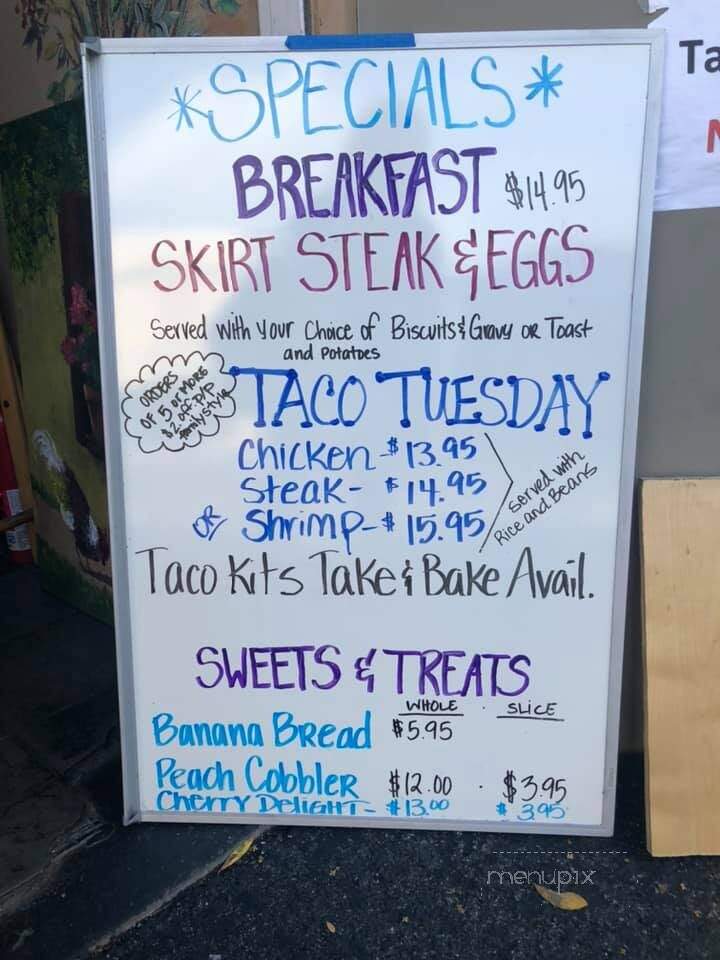 *SPECIALS*
BREAKFAST $14.95
SKIRT STEAK & EGGS
Served with Your Choice of Biscuits & Gravy or Toast
and Potatoes
ORDERS
OF 5 OR MORE
$2 off P/P
family style
TACO TUESDAY
Chicken - $13.95
Steak - $14.95
OR Shrimp - $15.95
served with
Rice and Beans
Taco Kits Take & Bake Avail.
SWEETS & TREATS
WHOLE · SLICE
Banana Bread $5.95
Peach Cobbler $12.00 · $3.95
Cherry Delight - $13.00 $3.95
Ta
menupix